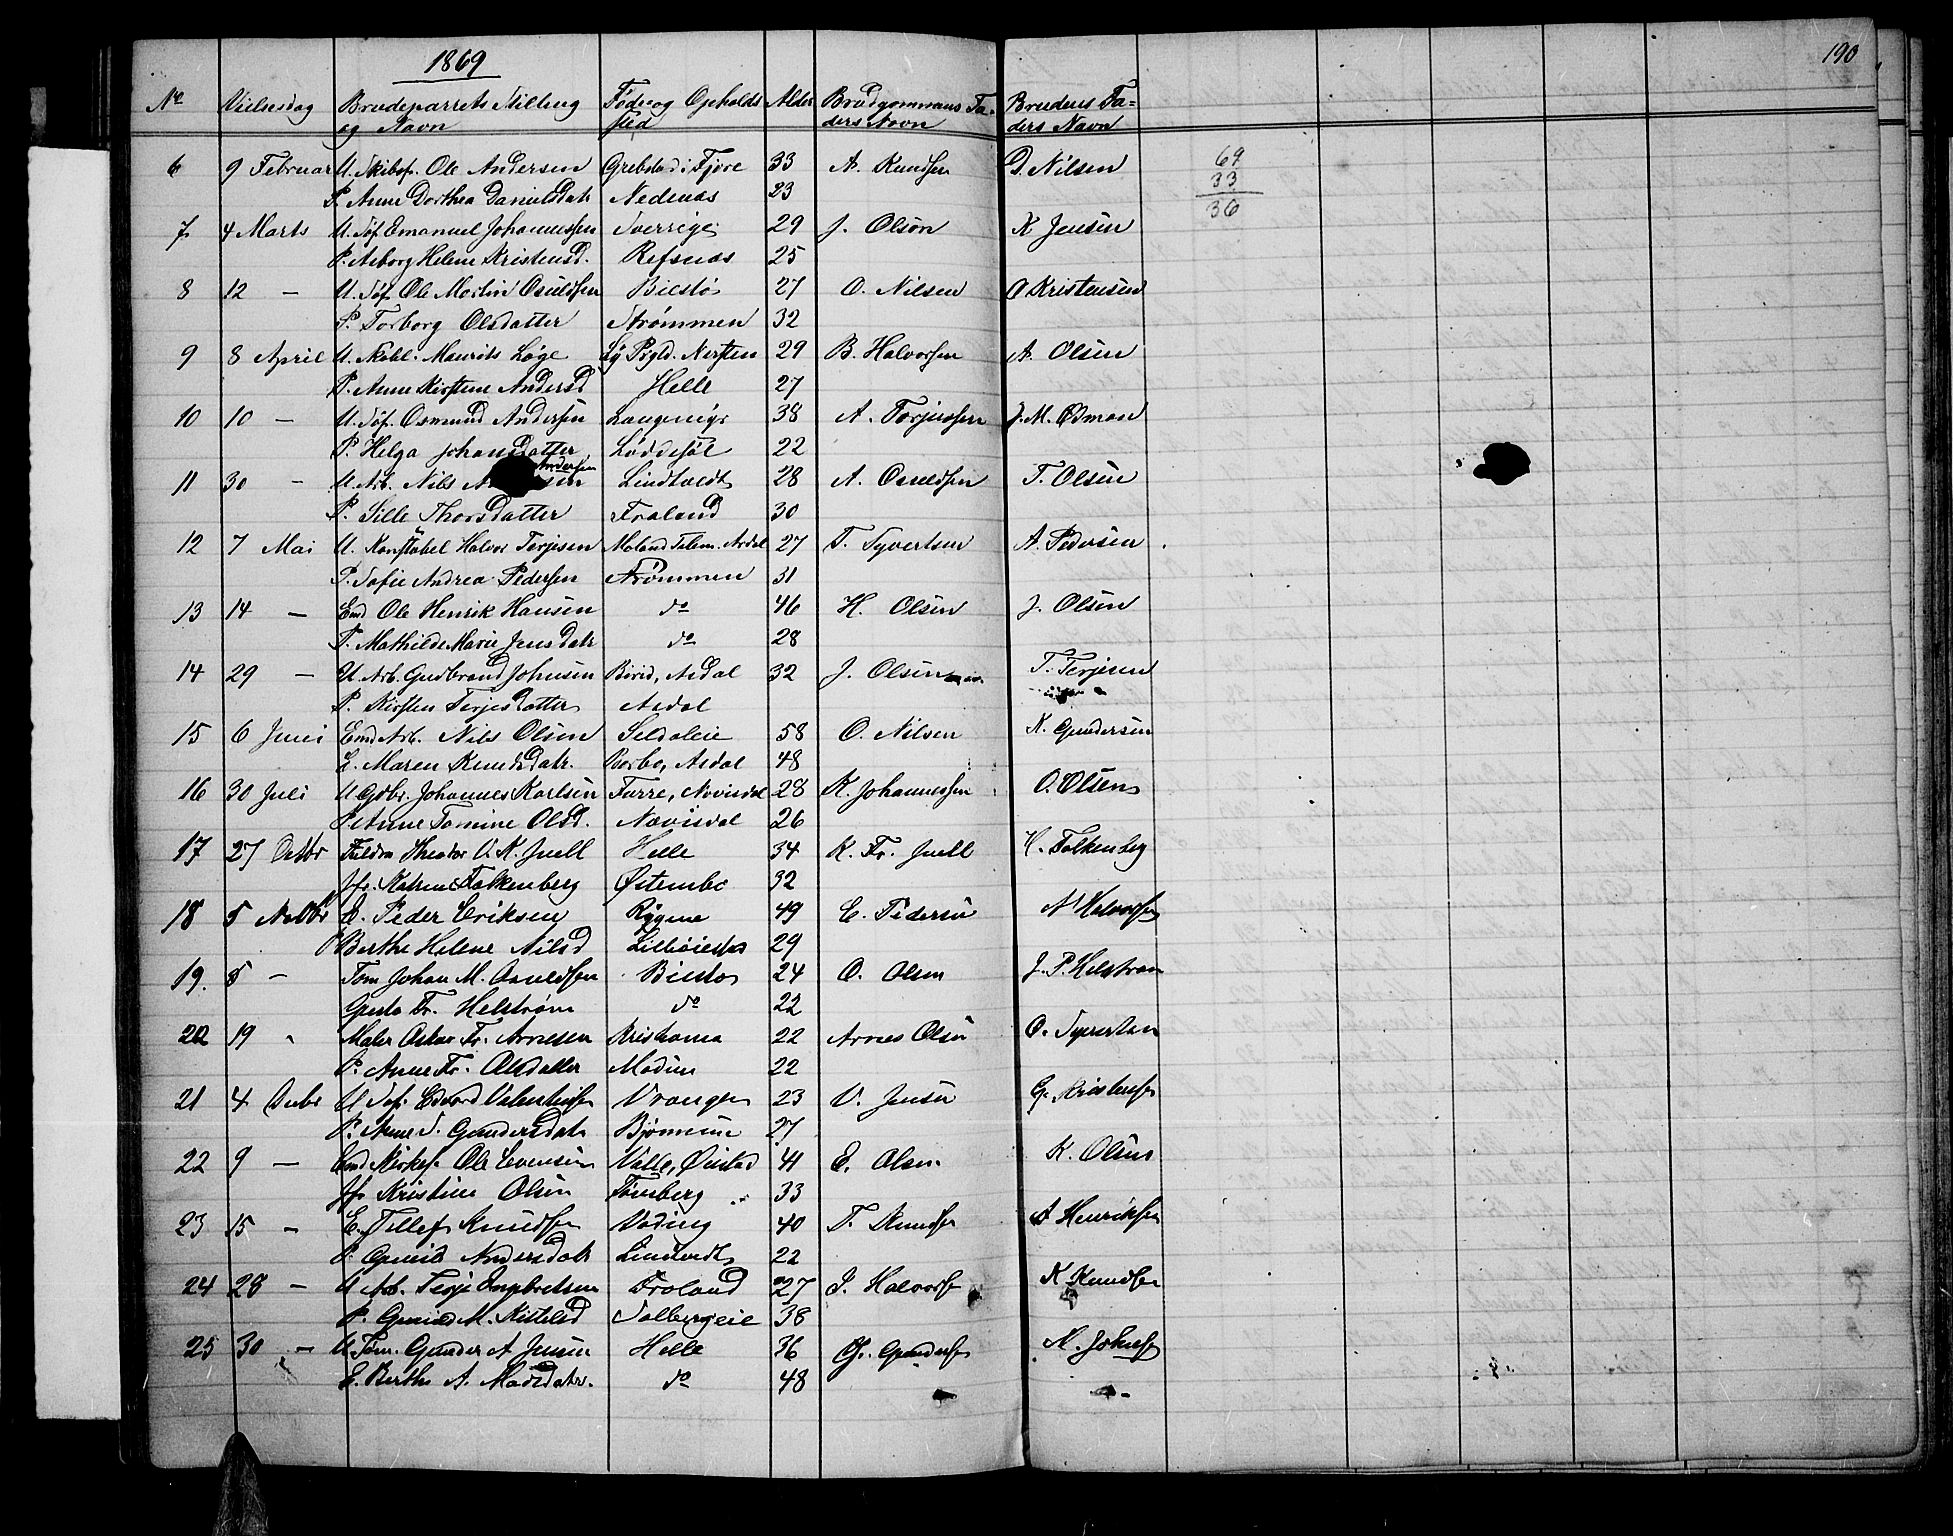 190
1869
No Vielsesdag Brudeparrets Stilling og Navn Føde og Opholds sted Alder Brudgommens Faders Navn Brudens Faders Navn
6 9 Februar U. Skibsf. Ole Andersen Grebstad i Fjære 33 A. Knudsen D. Nilsen 69
P. Anne Dorthea Danielsdatr Nedenæs 23 33
36
7 4 Marts U. Søf. Emanuel Johannessen Sverrige 29 J. Olson K Jensen
P. Aaborg Helene Kristensd. Refsnæs 25
8 12 — U. Søf. Ole Martin Osuldsen Biestø 27 O. Nilsen O Kristensen
P. Torborg Olsdatter Strømmen 32
9 8 April U. Maurits Løge Nersten 29 B. Halvorsen A. Olsen
P. Anne Kirstine Andersd Helle 27
10 10 — U. Søf. Osmund Andersen 38 A. Torjussen J. M. Ødman
P. Helga Johansdatter Løddesøl 22
11 30 — U. Arb. Nils Andersen Lindtvedt 28 A. Osuldsen T. Olsen
P. Sille Thorsdatter Froland 30
12 7 Mai U. Konstabel Halvor Terjesen Moland Telem. Asdal 27 T. Syvertsen A. Pedersen
P. Sofie Andrea Pedersen Strømmen 31
13 14 — Emd Ole Henrik Hansen do 46 H. Olsen J. Olsen
P. Mathilde Marie Jensdatr do 28
14 29 — U. Arb. Gudbrand Johnsen Birid, Asdal 32 J. Olsen T. Terjesen
P. Kirsten Terjesdatter Asdal
15 6 Juni Emd Arb. Nils Olsen Seldaleie 58 O. Nilsen K. Gundersen
E. Maren Knudsdatr. Berbo, Asdal 48
16 30 Juli U Gdbr. Johannes Karlsen Furre, Nævisdal 28 K. Johannessen O. Olsen
P. Anne Tomine Olsd. Nævisdal 26
17 27 Octbr Theodor V. K. Juell Helle 34 K. Fr. Juell H. Falkenberg
Jfr. Katrine Falkenberg Østenbo 32
18 5 Novbr E. Peder Eriksen Rygene 49 E. Pedersen N Halvorsen
P Berthe Helene Nilsd 29
19. 5 - Tom Johan M. Osuldsen Biestø 24 O. Olsen J. P. Helstrøm
Fr. Helstrøm do 22
20 19 " Maler Oskar Fr. Arnesen Kristiania 22 Arnes Olsen O. Syvertsen
P. Anne Fr. Olsdatter Modum 22
21 4 Decbr U Søf. Edvard Valentinsen Vrangen 23 V. Jensen G. Kristensen
P. Anne S. Gundersdatr Bjønnene 27
22 9 — Emd Ole Evensen Valle, Øiestad 41 E. Olsen K. Olsen
Jfr Kristine Olsen Tønsberg 33
23 15 — E. Tellef Knudsen Vading 40 T. Knudsen A Henriksen
P. Gunild Andersdatr Lindtvedt 22
24 28 — U Arb. Terje Ingbretsen Froland 27 I. Halvorsen K Knudsen
P. Gunild M. Kittelsd Solbergeie 38
25 30 — U. Tøm. Gunder A Jensen Helle 36 Gundersen M. Johnsen
E. Berthe A. Madsdatr. do 48